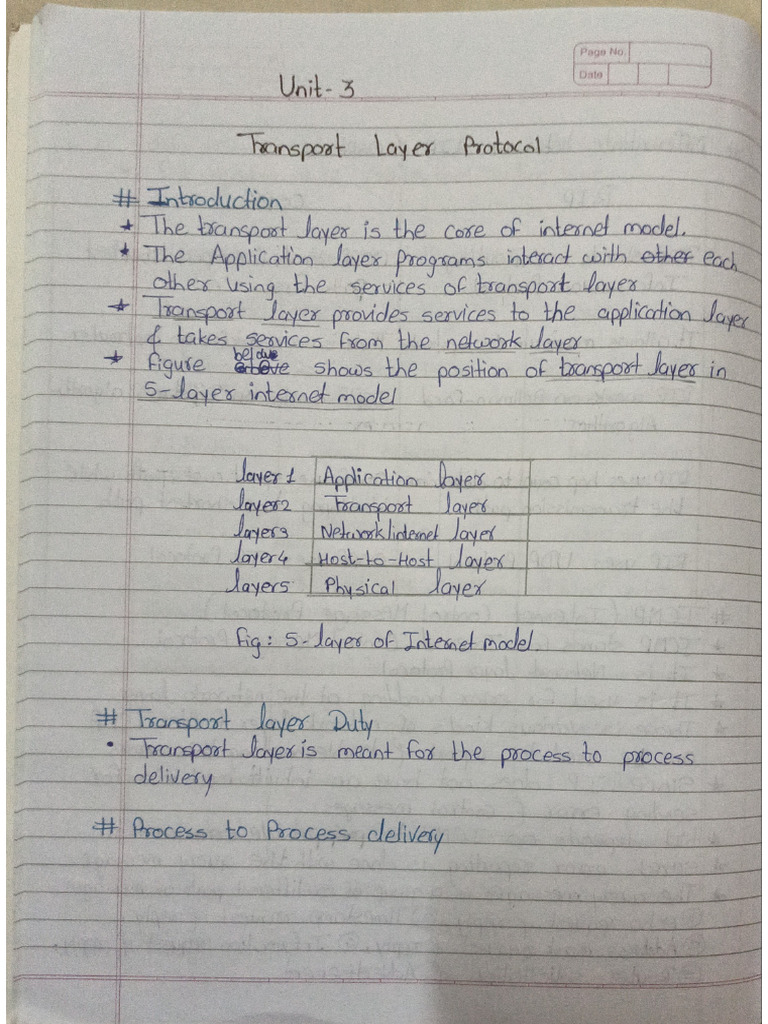 Page No.
Date
Unit-3
Transport Layer Protocol
# Introduction
* The transport layer is the core of internet model.
* The Application layer programs interact with other each
other using the services of transport layer
* Transport layer provides services to the application layer
& takes services from the network layer
* figure below above shows the position of transport layer in
5-layer internet model
layer1 Application layer
layer2 Transport layer
layer3 Network/internet layer
layer4 Host-to-Host layer
layer5 Physical layer
fig: 5-layer of Internet model.
# Transport layer Duty
• Transport layer is meant for the process to process
delivery
# Process to Process delivery